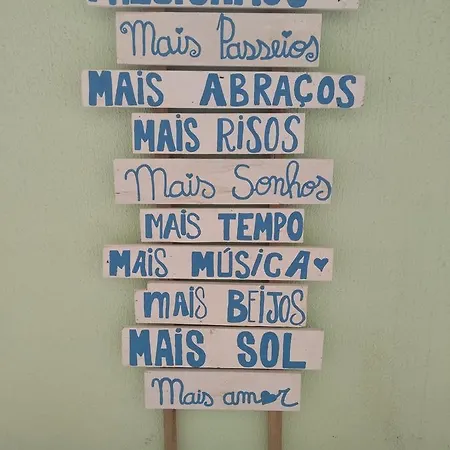 Mais Passeios
MAiS ABRAÇOS
MAiS RISOS
Mais Sonhos
MAiS TEMPO
MAiS MÚSiCA
MAiS BEIJOS
MAiS SOL
Mais amor